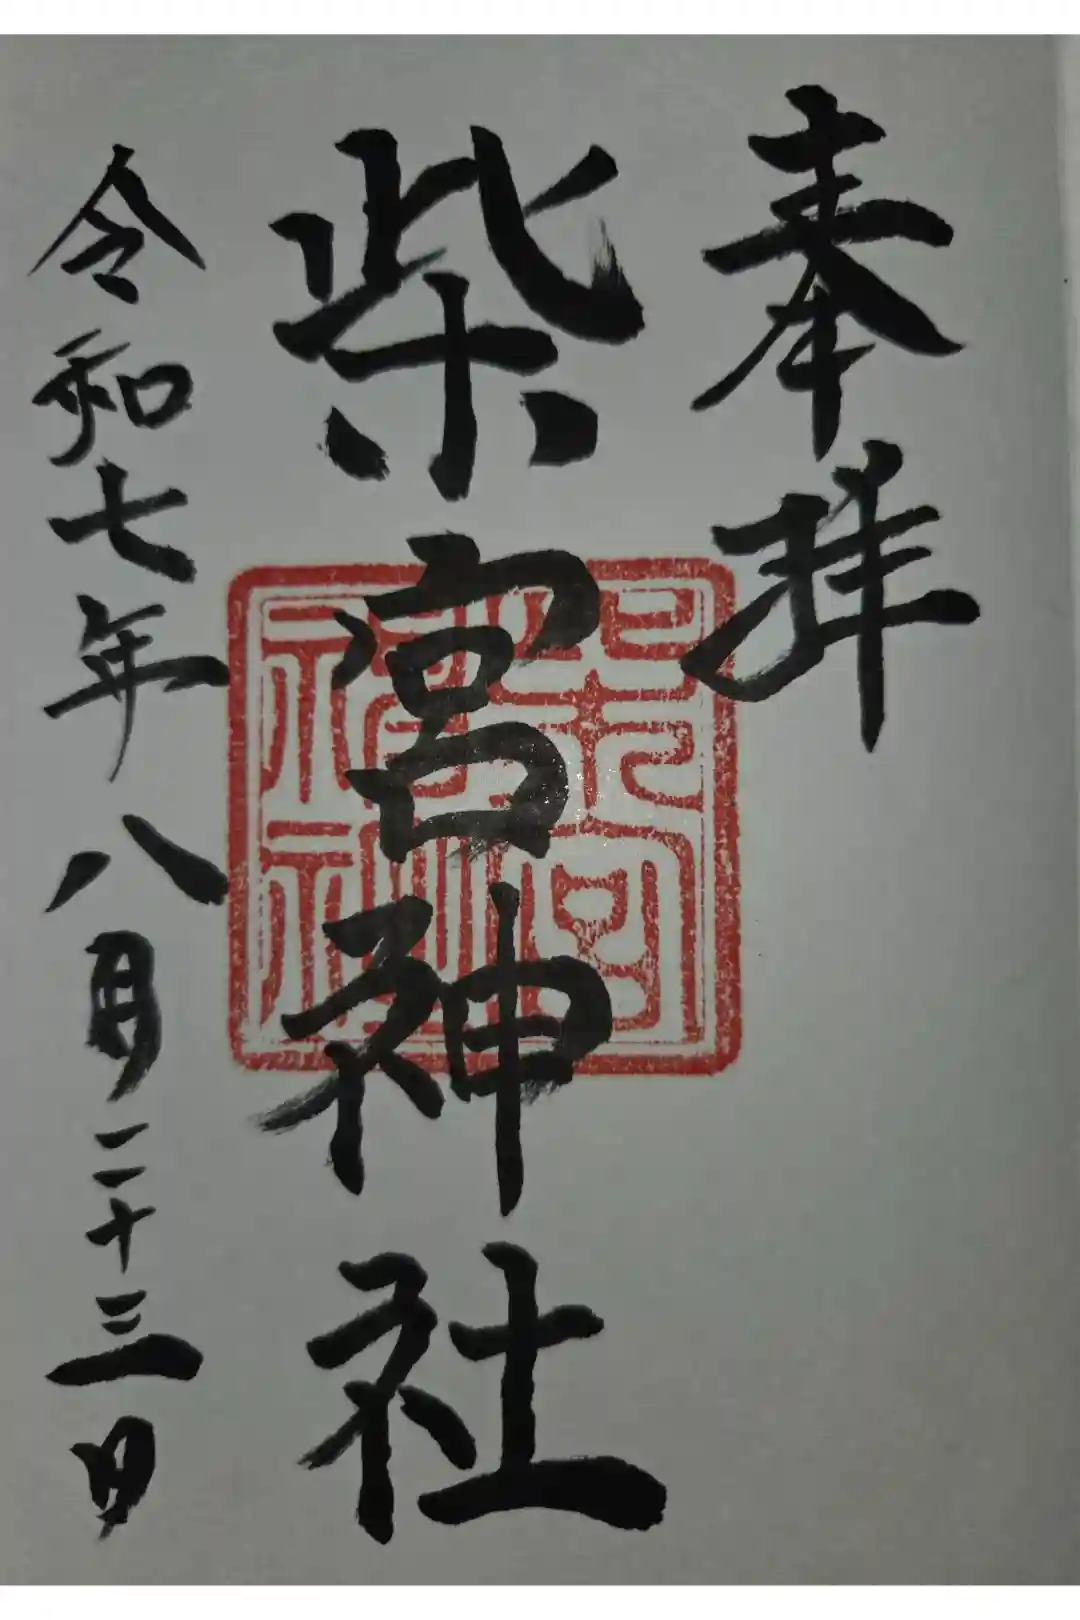 奉拝
柴宮神社
令和七年八月二十三日
柴宮
神社